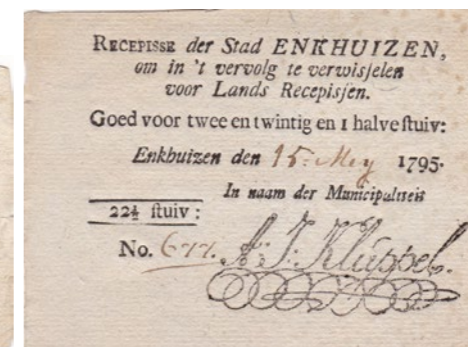 RECEPISSE der Stad ENKHUIZEN,
om in 't vervolg te verwisjelen
voor Lands Recepisjen.
Goed voor twee en twintig en 1 halve ſtuiv:
Enkhuizen den 15: Mey 1795.
In naam der Municipaliteit
22½ ſtuiv:
No. 677. A: J: Kluppel.